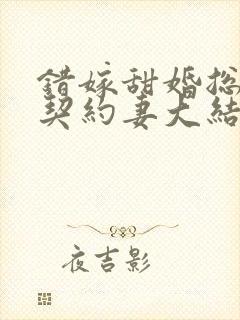 錯嫁甜婚总
契約妻大結
夜吉影